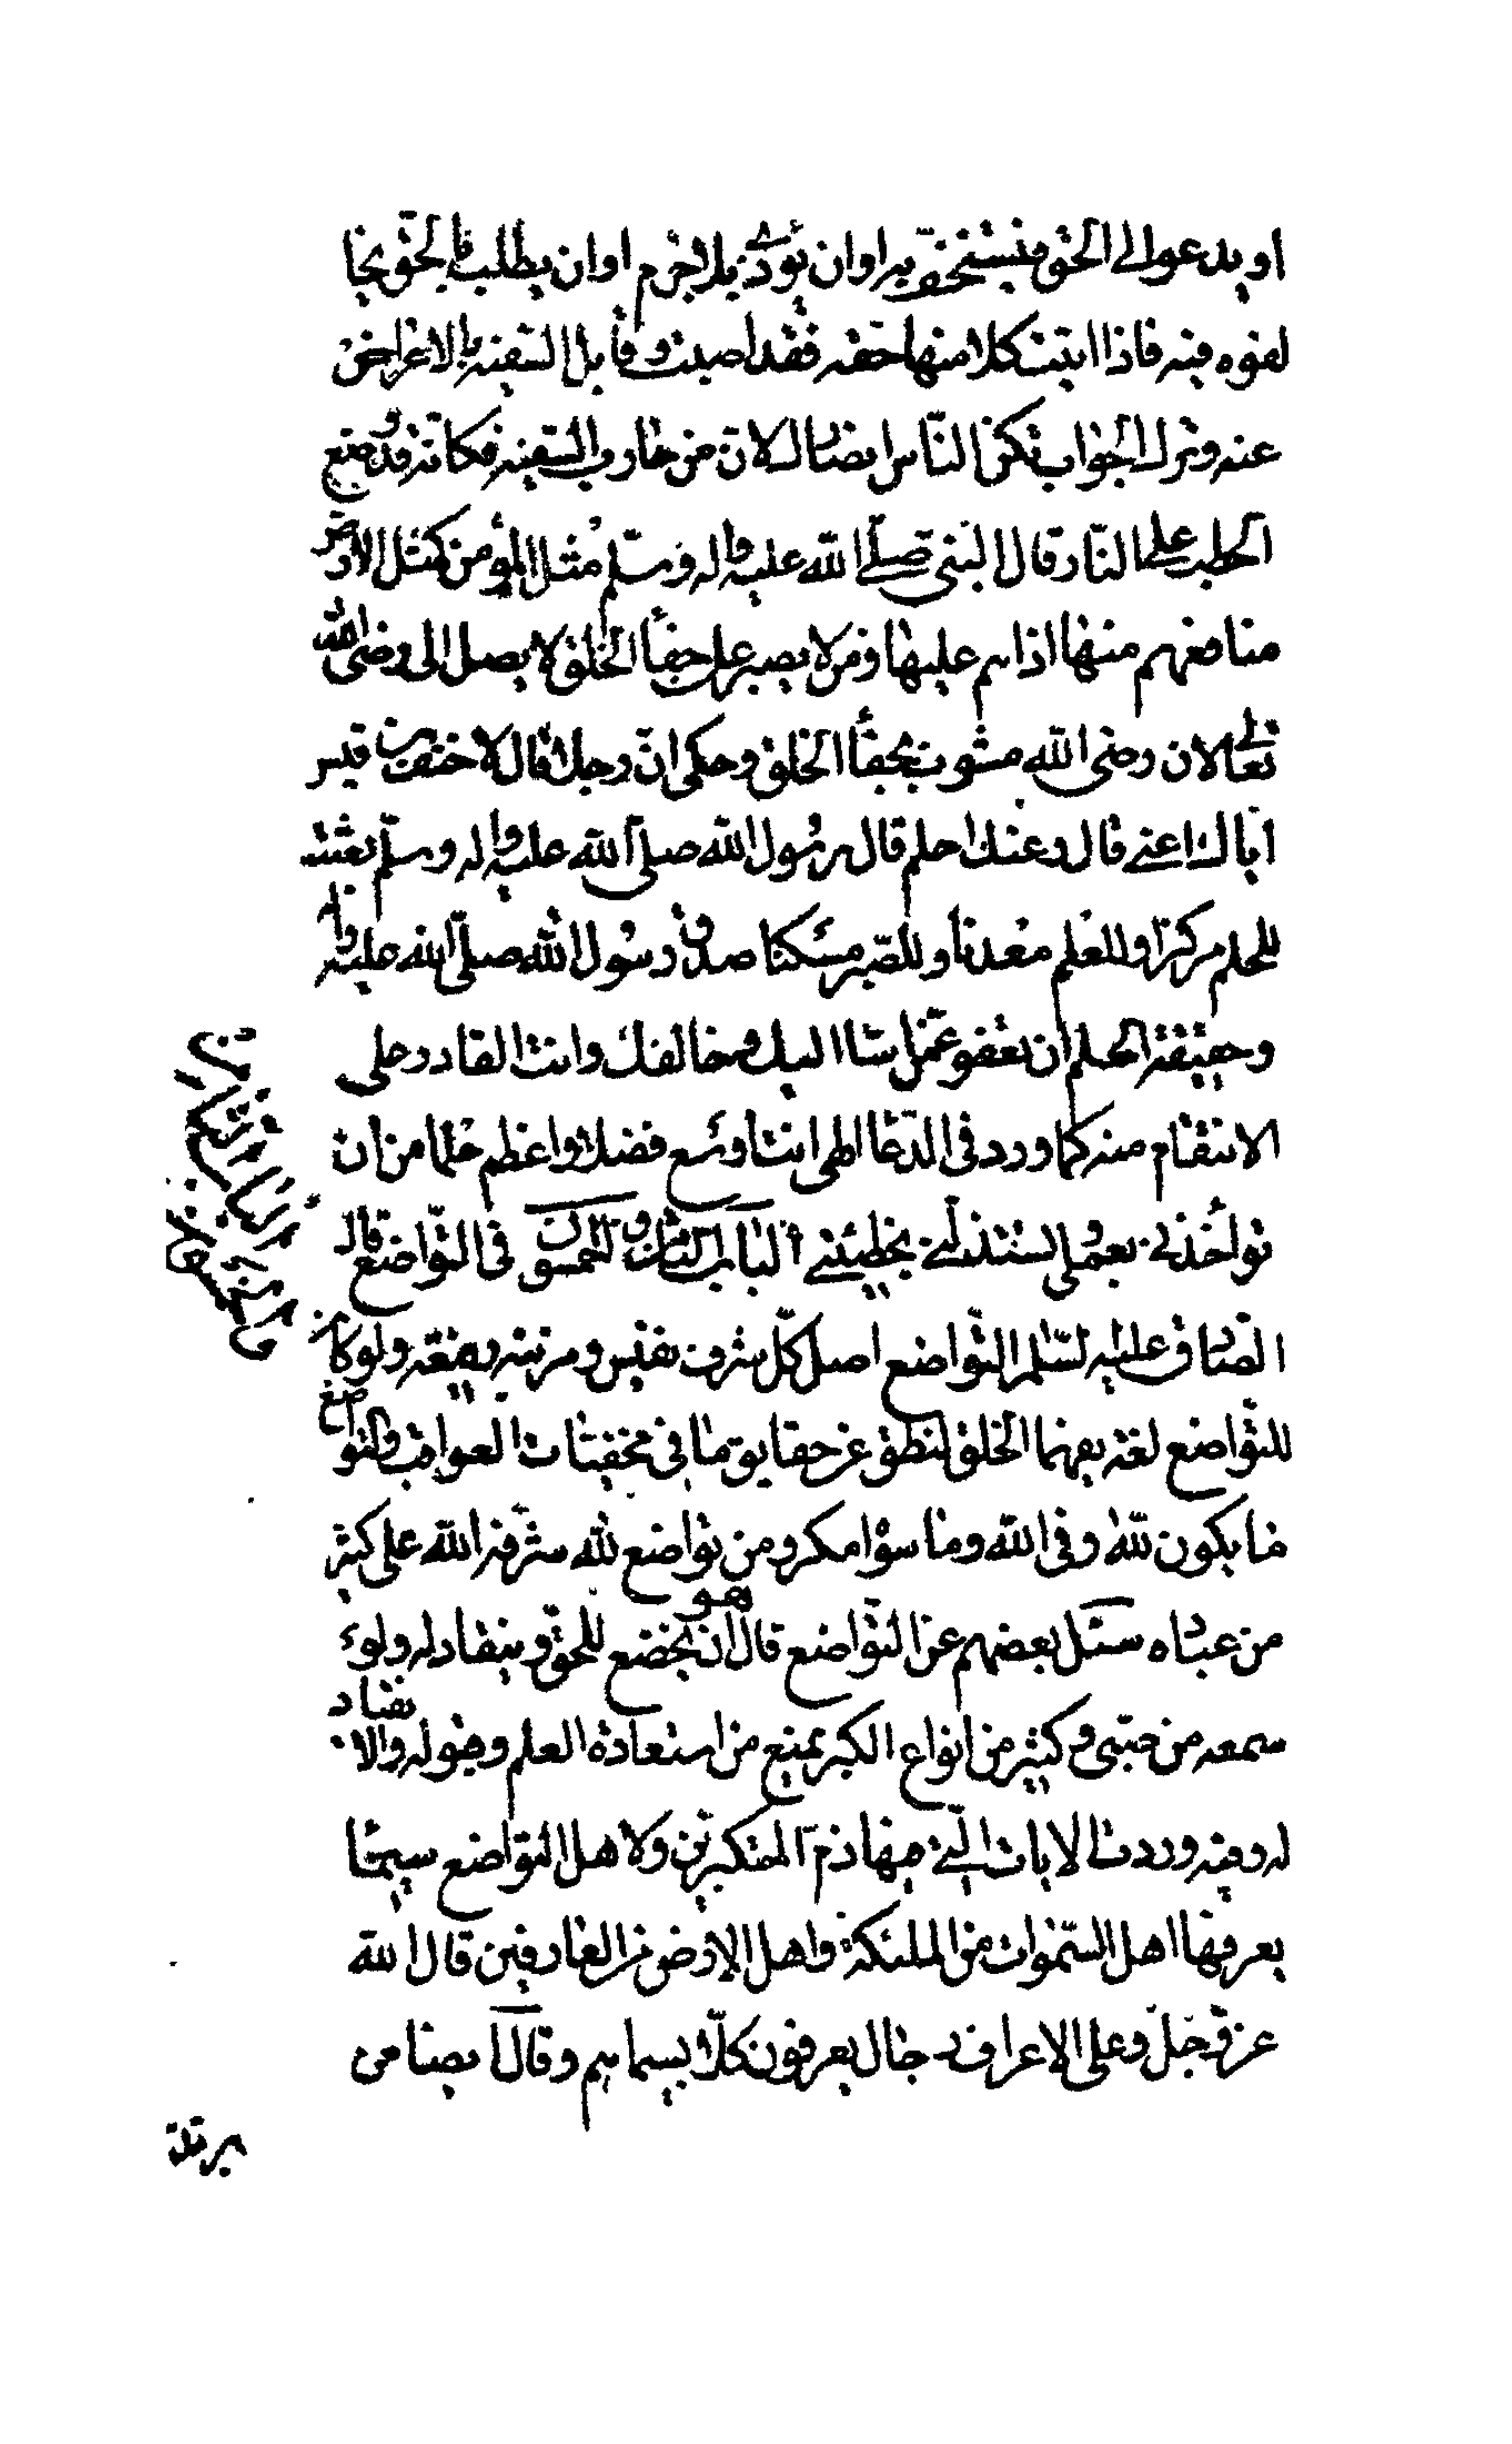 او يدعوا الى الحق فيستخف به او ان يؤذى بلا جرم او ان يطلب بالحق يخا
لفوه فيه فاذا اتيت كلا منها حقه فقد اصبت وقابل السفيه بالاعراض
عنه وترك الجواب تكن الناس انصارك لان من جاوب السفيه فكانه قد وضع
الحطب على النار قال النبى صلى الله عليه واله وسلم مثل المؤمن كمثل الارض
منافعهم منها اذاهم عليها ومن لا يصبر على جفاء الخلق لا يصل الى رضى الله
تعالى لان رضى الله مشوب بجفاء الخلق وحكى ان رجلا قال لاحنف بن قيس
اياك اعنى قال وعنك احلم قال رسول الله صلى الله عليه واله وسلم بعثت
للحلم مركزا وللعلم معدنا وللصبر مسكنا صدق رسول الله صلى الله عليه واله
وحقيقة الحلم ان تعفو عمن اساء اليك وخالفك وانت القادر على
الانتقام منه كما ورد فى الدعا الهى انت اوسع فضلا واعظم حلما من ان
تواخذنى بعملى وتستذلنى بخطيئتى الباب الثامن والخمسون فى التواضع قال
الصادق عليه السلام التواضع اصل كل شرف نفيس ومرتبة رفيعة ولو كان
للتواضع لغة يفهما الخلق لنطق عن حقايق ما فى مخفيات العواقب والتواضع
ما يكون لله وفى الله وما سواه مكر ومن تواضع لله شرفه الله على كثير
من عباده سئل بعضهم عن التواضع قال هو ان يخضع للحق وينقاد له ولو
سمعه من صبى وكثير من انواع الكبر يمنع من استفادة العلم وقبوله والانقياد
له وفيه وردت الايات التى فيها ذم المتكبرين ولاهل التواضع سيما
يعرفها اهل السموات من الملئكة واهل الارض من العارفين قال الله
عز وجل وعلى الاعراف رجال يعرفون كلا بسيماهم وقال ايضا من
يرتد